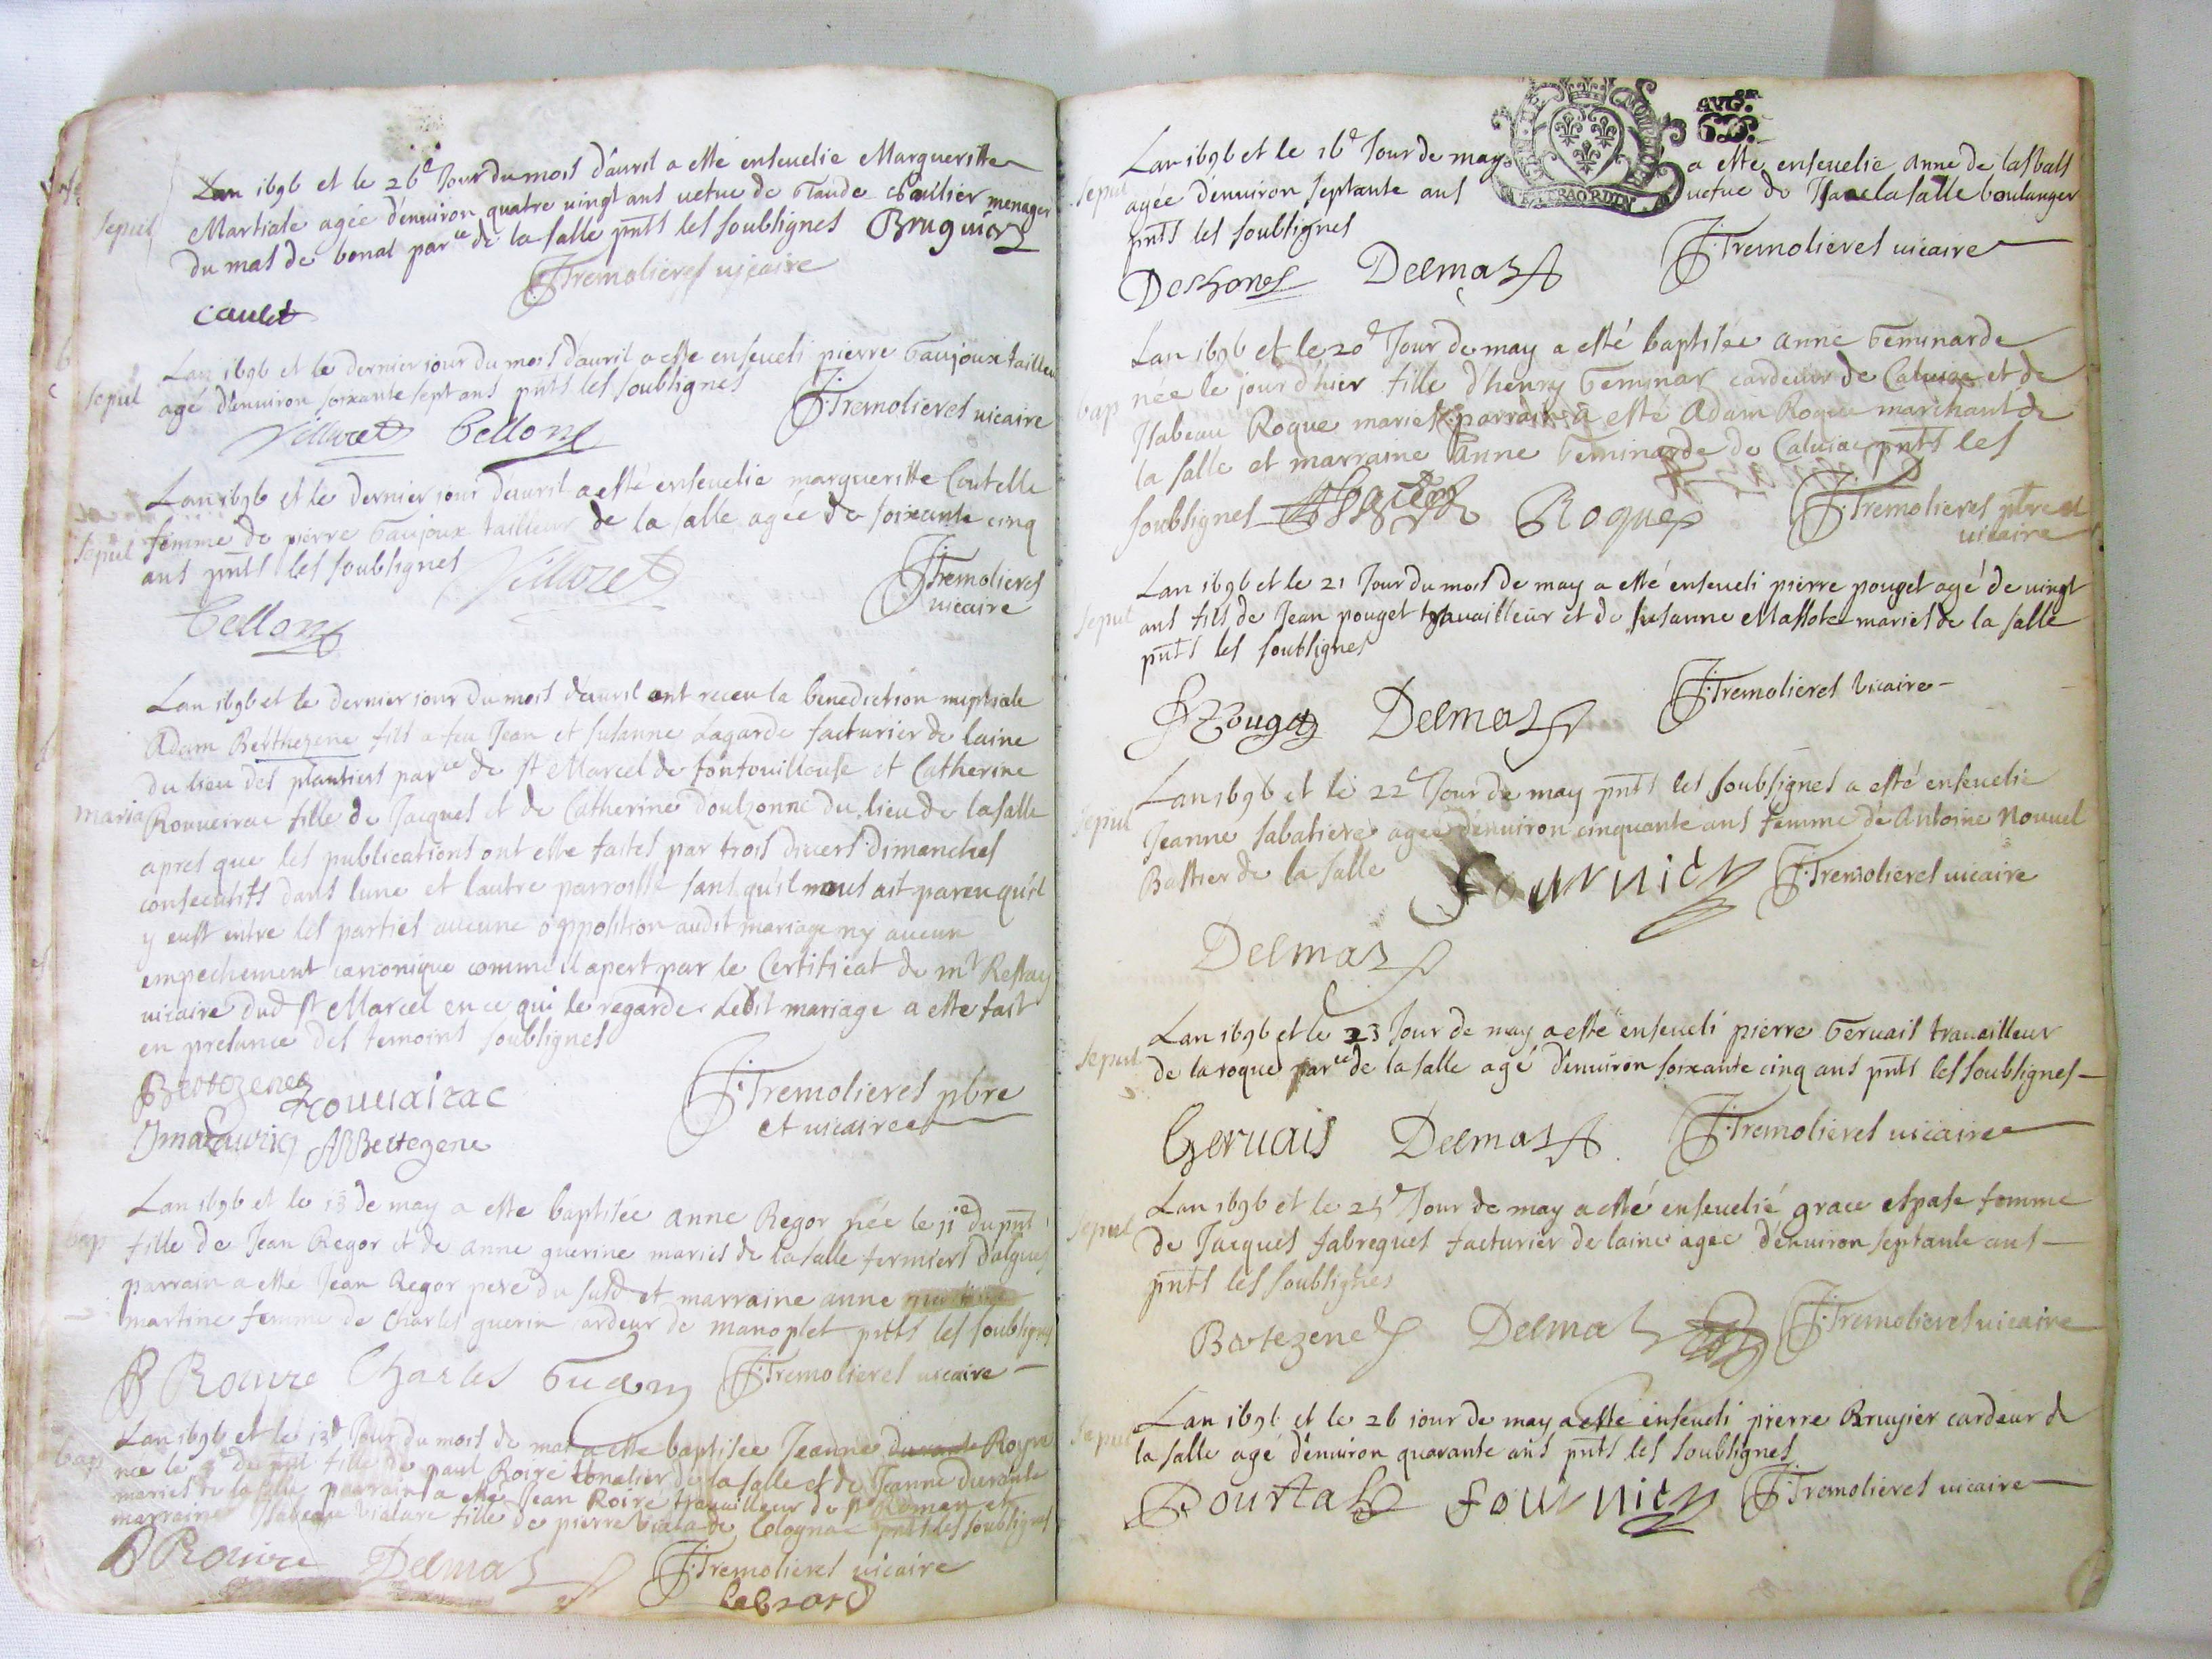 Lan 1696 et le 26e Jour du mois d'auril a esté enseuelie Margueritte
sepul
Martiale agée d'enuiron quatre uingt ans uefue de Claude menager
du mas de bonal parce de la salle pnts les soubsignes Bruguier
JTremolieres uicaire
caulet
Lan 1696 et le dernier iour du mois dauril a esté enseueli pierre Gaujoux tailleur
sepul
agé d'enuiron soixante sept ans pnts les soubsignes
JTremolieres uicaire
Villaret
Lan 1696 et le dernier iour d'auril a esté enseuelie margueritte Coutelle
femme de pierre Gaujoux tailleur de la salle agée de soixante cinq
sepul
ans pnts les soubsignes Villaret
JTremolieres
uicaire
Lan 1696 et le dernier iour du mois d'auril ont receu la benediction nuptiale
Adam Berthezene fils a feu Jean et susanne Lagarde facturier de laine
du lieu des plantiers parce de st Marcel de fontfouillouse et Catherine
maria
Rouueirac fille de Jacques et de Catherine doulzonne du lieu de lasalle
apres que les publications ont este faites par trois diuers dimanches
consecutifs dans lune et lautre parroisse sans qu'il nous ait pareu qu'il
y eust entre les parties aucune opposition audit mariage ny aucun
empechement canonique comme il apert par le Certificat de mr
uicaire dud st Marcel en ce qui le regarde Ledit mariage a este fait
en presance des temoins soubsignes
Bertezene
Rouuairac
JTremolieres pbre
et uicaire
ABertezene
Lan 1696 et le 13 de may a esté baptisée anne Regor née le 11e du pnt
bap
fille de Jean Regor et de anne guerine maries de la salle fermiers
parrain a esté Jean Regor pere du susd et marraine anne
martine femme de Charles guerin cardeur de manoplet pnts les soubsignes
Rouire Charles JTremolieres uicaire
Lan 1696 et le 13e Jour du mois de mai a este baptisee Jeanne
bap
née le du pnt fille de paul Roire de la salle et de Jeanne durante
maries de la salle parrain a esté Jean Roire trauailleur de st Roman et
marraine Isabeau uialare fille de pierre uiala de Cologna pnts les soubsignes
Rouire Delmas JTremolieres uicaire
Lan 1696 et le 16e Jour de may a esté enseuelie anne de lasbals
sepul
agée d'enuiron septante ans uefue de Isaac lasalle boulanger
EXTRAORDIN
pnts les soubsignes
Deshons Delmas JTremolieres uicaire
Lan 1696 et le 20e Jour de may a esté baptisée anne Geminarde
née le jour d'hier fille d'henry Geminar cardeur de Caluiac et de
bap
Isabeau Roque maries parrain a esté Adam Roque marchant de
la salle et marraine anne Geminarde de Caluiac pnts les
soubsignes Roques JTremolieres pbre et
uicaire
Lan 1696 et le 21 Jour du mois de may a esté enseueli pierre pouget agé de uingt
sepul
ans fils de Jean pouget trauailleur et de susanne Massote maries de la salle
pnts les soubsignes
Pouget Delmas JTremolieres Vicaire
Lan 1696 et le 22e Jour de may pnts les soubsignes a esté enseuelie
sepul
Jeanne sabatiere agée d'enuiron cinquante ans femme de Antoine Nouuel
Bastier de la salle Fournier JTremolieres uicaire
Delmas
Lan 1696 et le 23 Jour de may a esté enseueli pierre Geruais trauailleur
sepul
de laroque parce de la salle agé d'enuiron soixante cinq ans pnts les soubsignes
Geruais Delmas JTremolieres uicaire
Lan 1696 et le 25e Jour de may a esté enseuelié grace espase femme
sepul
de Jacques fabregues facturier de laine agée d'enuiron septante ans
pnts les soubsignes
Bertezene Delmas JTremolieres uicaire
Lan 1696 et le 26 iour de may a esté enseueli pierre Bruguier cardeur de
sepul
la salle agé d'enuiron quarante ans pnts les soubsignes
Pourtal Fournier JTremolieres uicaire